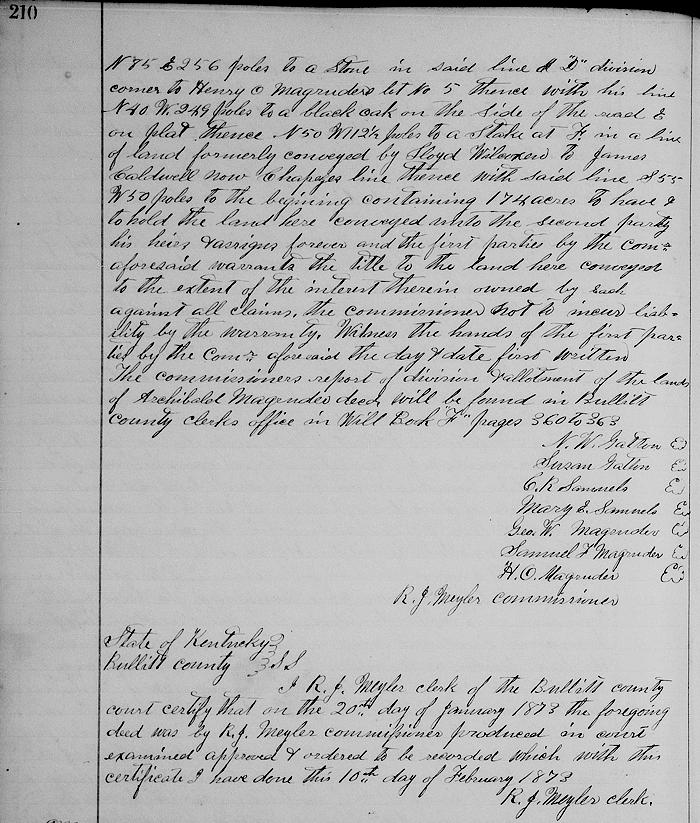 210
N 75 E 256 poles to a Stone in said line at "D" division
corner to Henry O Magruders lot No 5 thence with his line
N 40 W. 249 poles to a black oak on the side of the road E
on plat thence N 50 W 112½ poles to a Stake at F in a line
of land formerly conveyed by Lloyd Wilcoxen to James
Caldwell now line thence with said line S 55
W 50 poles to the begining containing 174 acres to have &
to hold the land here conveyed unto the second party
his heirs & assigns forever and the first parties by the Com=
aforesaid warrants the title to the land here conveyed
to the extent of the interest therein owned by each
against all claims, the commissioner not to incur liab=
ility by the warranty. Witness the hands of the first par=
ties by the Com=r aforesaid the day & date first written
The commissioners report of division & allotment of the lands
of Archibald Magruder decd, will be found in Bullitt
county clerks office in Will Book "F" pages 360 to 363
N. W. Gatton
Susan Gatton
C. R Samuels
Mary E. Samuels
Geo. W. Magruder
Samuel F Magruder
H. O. Magruder
R. J. Meyler commissioner
State of Kentucky
Bullitt county SS
I R. J. Meyler clerk of the Bullitt county
court certify that on the 20th day of January 1873 the foregoing
deed was by R. J. Meyler commissioner produced in court
examined approved & ordered to be recorded which with this
certificate I have done this 10th day of February 1873
R. J. Meyler clerk.